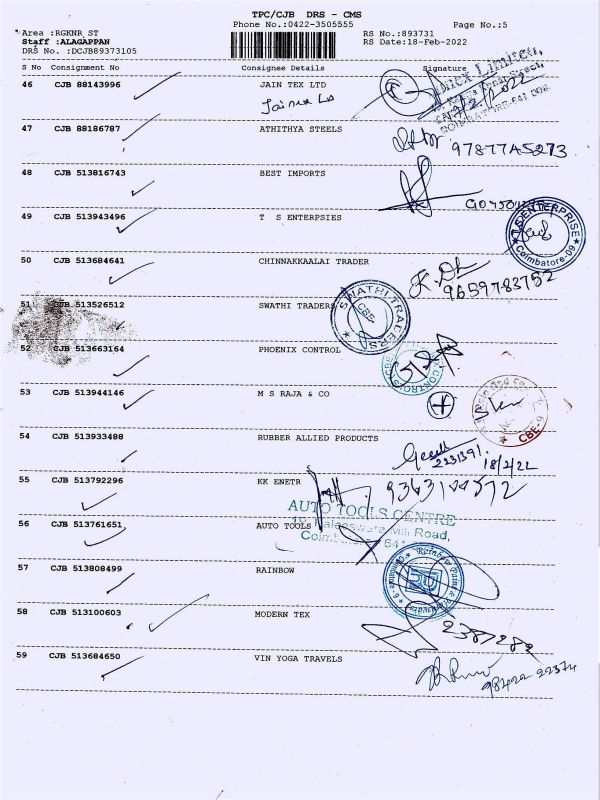 TPC/CJB DRS - CMS
Phone No.:0422-3505555 Page No.:5
Area :RGKNR_ST RS No.:893731
Staff :ALAGAPPAN RS Date:18-Feb-2022
DRS No. :DCJB89373105
S No Consignment No Consignee Details Signature
46 CJB 88143996 JAIN TEX LTD
47 CJB 88186787 ATHITHYA STEELS
48 CJB 513816743 BEST IMPORTS
49 CJB 513943496 T S ENTERPSIES
ENTERPRISE
Coimbatore-09
50 CJB 513684641 CHINNAKAALAI TRADER
9659783752
51 CJB 513526512 SWATHI TRADERS
SWATHI TRADERS
CBE
52 CJB 513663164 PHOENIX CONTROL
53 CJB 513944146 M S RAJA & CO
CBE-9
54 CJB 513933488 RUBBER ALLIED PRODUCTS
2231391
18/2/22
55 CJB 513792296 KK ENETR
AUTO TOOLS CENTRE
Road,
56 CJB 513761651 AUTO TOOLS
57 CJB 513808499 RAINBOW
Rainbow
58 CJB 513100603 MODERN TEX
2387282
59 CJB 513684650 VIN YOGA TRAVELS
98422 22374